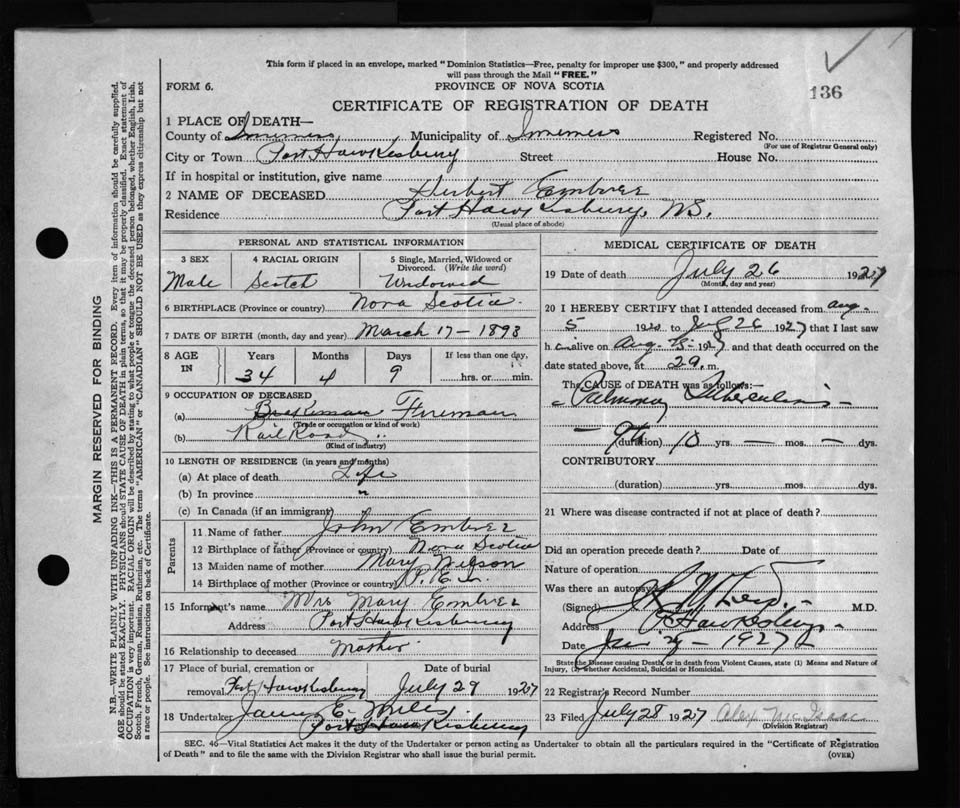 This form if placed in an envelope, marked "Dominion Statistics—Free, penalty for improper use $300," and properly addressed
will pass through the Mail "FREE."
136
FORM 6.
PROVINCE OF NOVA SCOTIA
CERTIFICATE OF REGISTRATION OF DEATH
1 PLACE OF DEATH—
County of Inverness Municipality of Inverness Registered No.
(For use of Registrar General only)
City or Town Port Hawkesbury Street House No.
If in hospital or institution, give name
2 NAME OF DECEASED Herbert Embree
Residence Port Hawkesbury, N.S.
(Usual place of abode)
PERSONAL AND STATISTICAL INFORMATION
3 SEX 4 RACIAL ORIGIN 5 Single, Married, Widowed or Divorced. (Write the word)
Male Scotch Widowed
6 BIRTHPLACE (Province or country) Nova Scotia
7 DATE OF BIRTH (month, day and year) March 17 - 1893
8 AGE IN Years Months Days If less than one day,
34 4 9 hrs. or min.
9 OCCUPATION OF DECEASED
(a) Brakeman Fireman
(Trade or occupation or kind of work)
(b) Rail Road
(Kind of industry)
10 LENGTH OF RESIDENCE (in years and months)
(a) At place of death Life
(b) In province "
(c) In Canada (if an immigrant)
Parents
11 Name of father John Embree
12 Birthplace of father (Province or country) Nova Scotia
13 Maiden name of mother Mary Wilson
14 Birthplace of mother (Province or country) P. E. I.
15 Informant's name Mrs Mary Embree
Address Port Hawkesbury
16 Relationship to deceased Mother
17 Place of burial, cremation or Date of burial
removal Port Hawkesbury July 29 1927
18 Undertaker James E. Miles
Port Hawkesbury
MEDICAL CERTIFICATE OF DEATH
19 Date of death July 26 1927
(Month, day and year)
20 I HEREBY CERTIFY that I attended deceased from Aug.
5 19 to July 26 1927 that I last saw
h im alive on Aug. 19 and that death occurred on the
date stated above, at 29. m.
The CAUSE of DEATH was as follows:—
Pulmonary Tuberculosis
(duration) 10 yrs. — mos. — dys.
CONTRIBUTORY
(duration) yrs. mos. dys.
21 Where was disease contracted if not at place of death?
Did an operation precede death? Date of
Nature of operation
Was there an autopsy
(Signed) M.D.
Address Pt Hawkesbury
Date 1927
State the Disease causing Death, or in death from Violent Causes, state (1) Means and Nature of
Injury, (2) whether Accidental, Suicidal or Homicidal.
22 Registrar's Record Number
23 Filed July 28 1927
(Division Registrar)
SEC. 46—Vital Statistics Act makes it the duty of the Undertaker or person acting as Undertaker to obtain all the particulars required in the "Certificate of Registration
of Death" and to file the same with the Division Registrar who shall issue the burial permit.
(OVER)
MARGIN RESERVED FOR BINDING
N.B.—WRITE PLAINLY WITH UNFADING INK—THIS IS A PERMANENT RECORD. Every item of information should be carefully supplied.
AGE should be stated EXACTLY. PHYSICIANS should STATE CAUSE OF DEATH in plain terms, so that it may be properly classified. Exact statement of
OCCUPATION is very important. RACIAL ORIGIN will be described by stating to what people or tongue the deceased person belonged, whether English, Irish,
Scotch, French, German, Russian, Ruthenian, etc. The terms "AMERICAN" or "CANADIAN" SHOULD NOT BE USED as they express citizenship but not
a race or people. See instructions on back of Certificate.